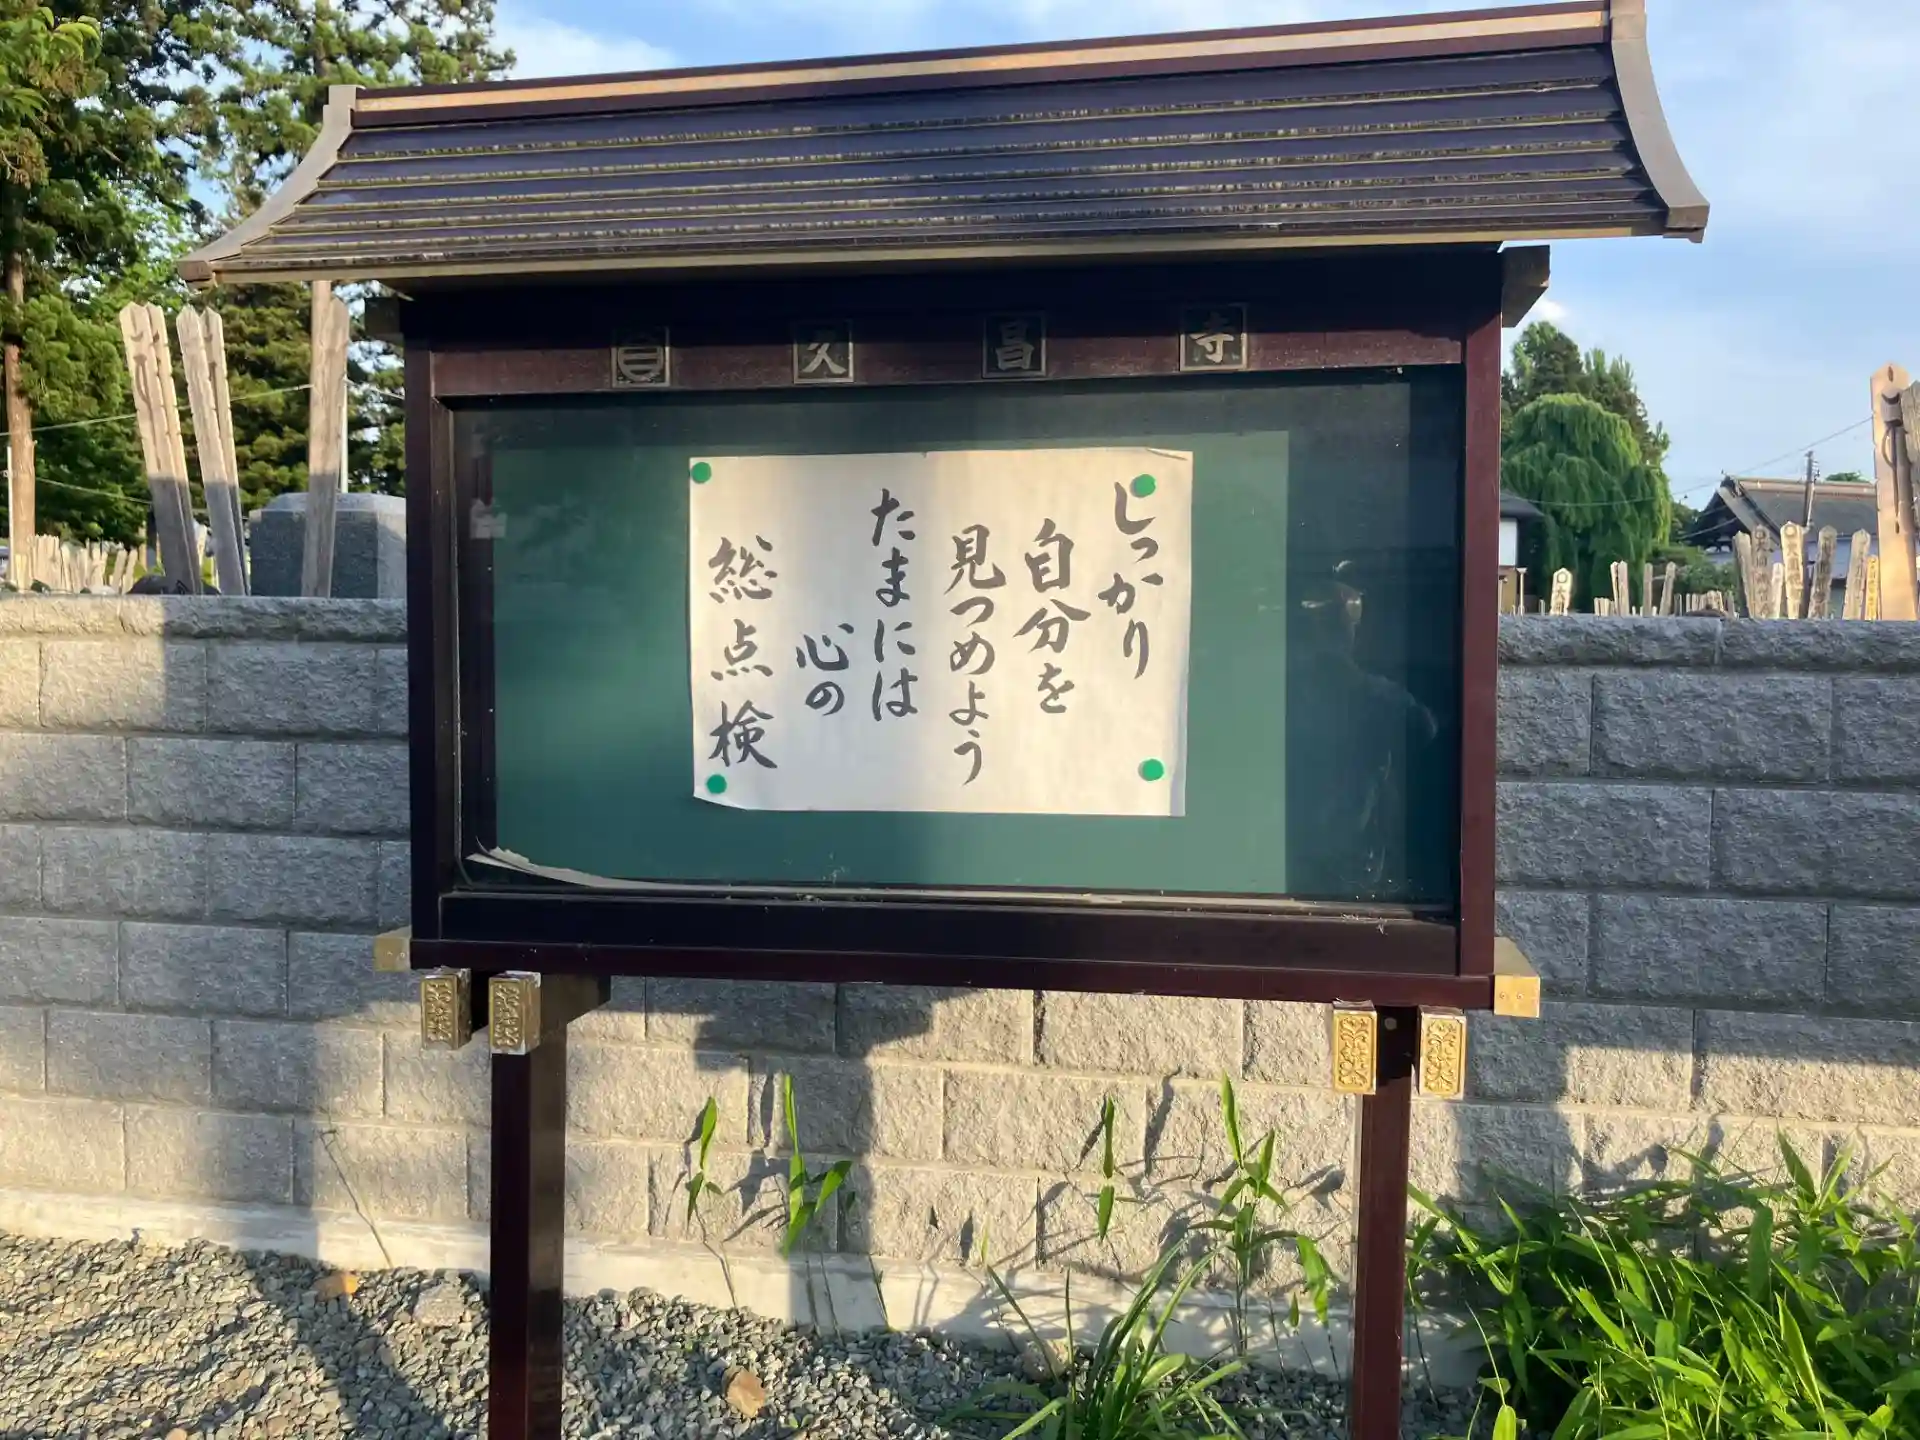 久昌寺
しっかり
自分を
見つめよう
たまには
心の
総点検